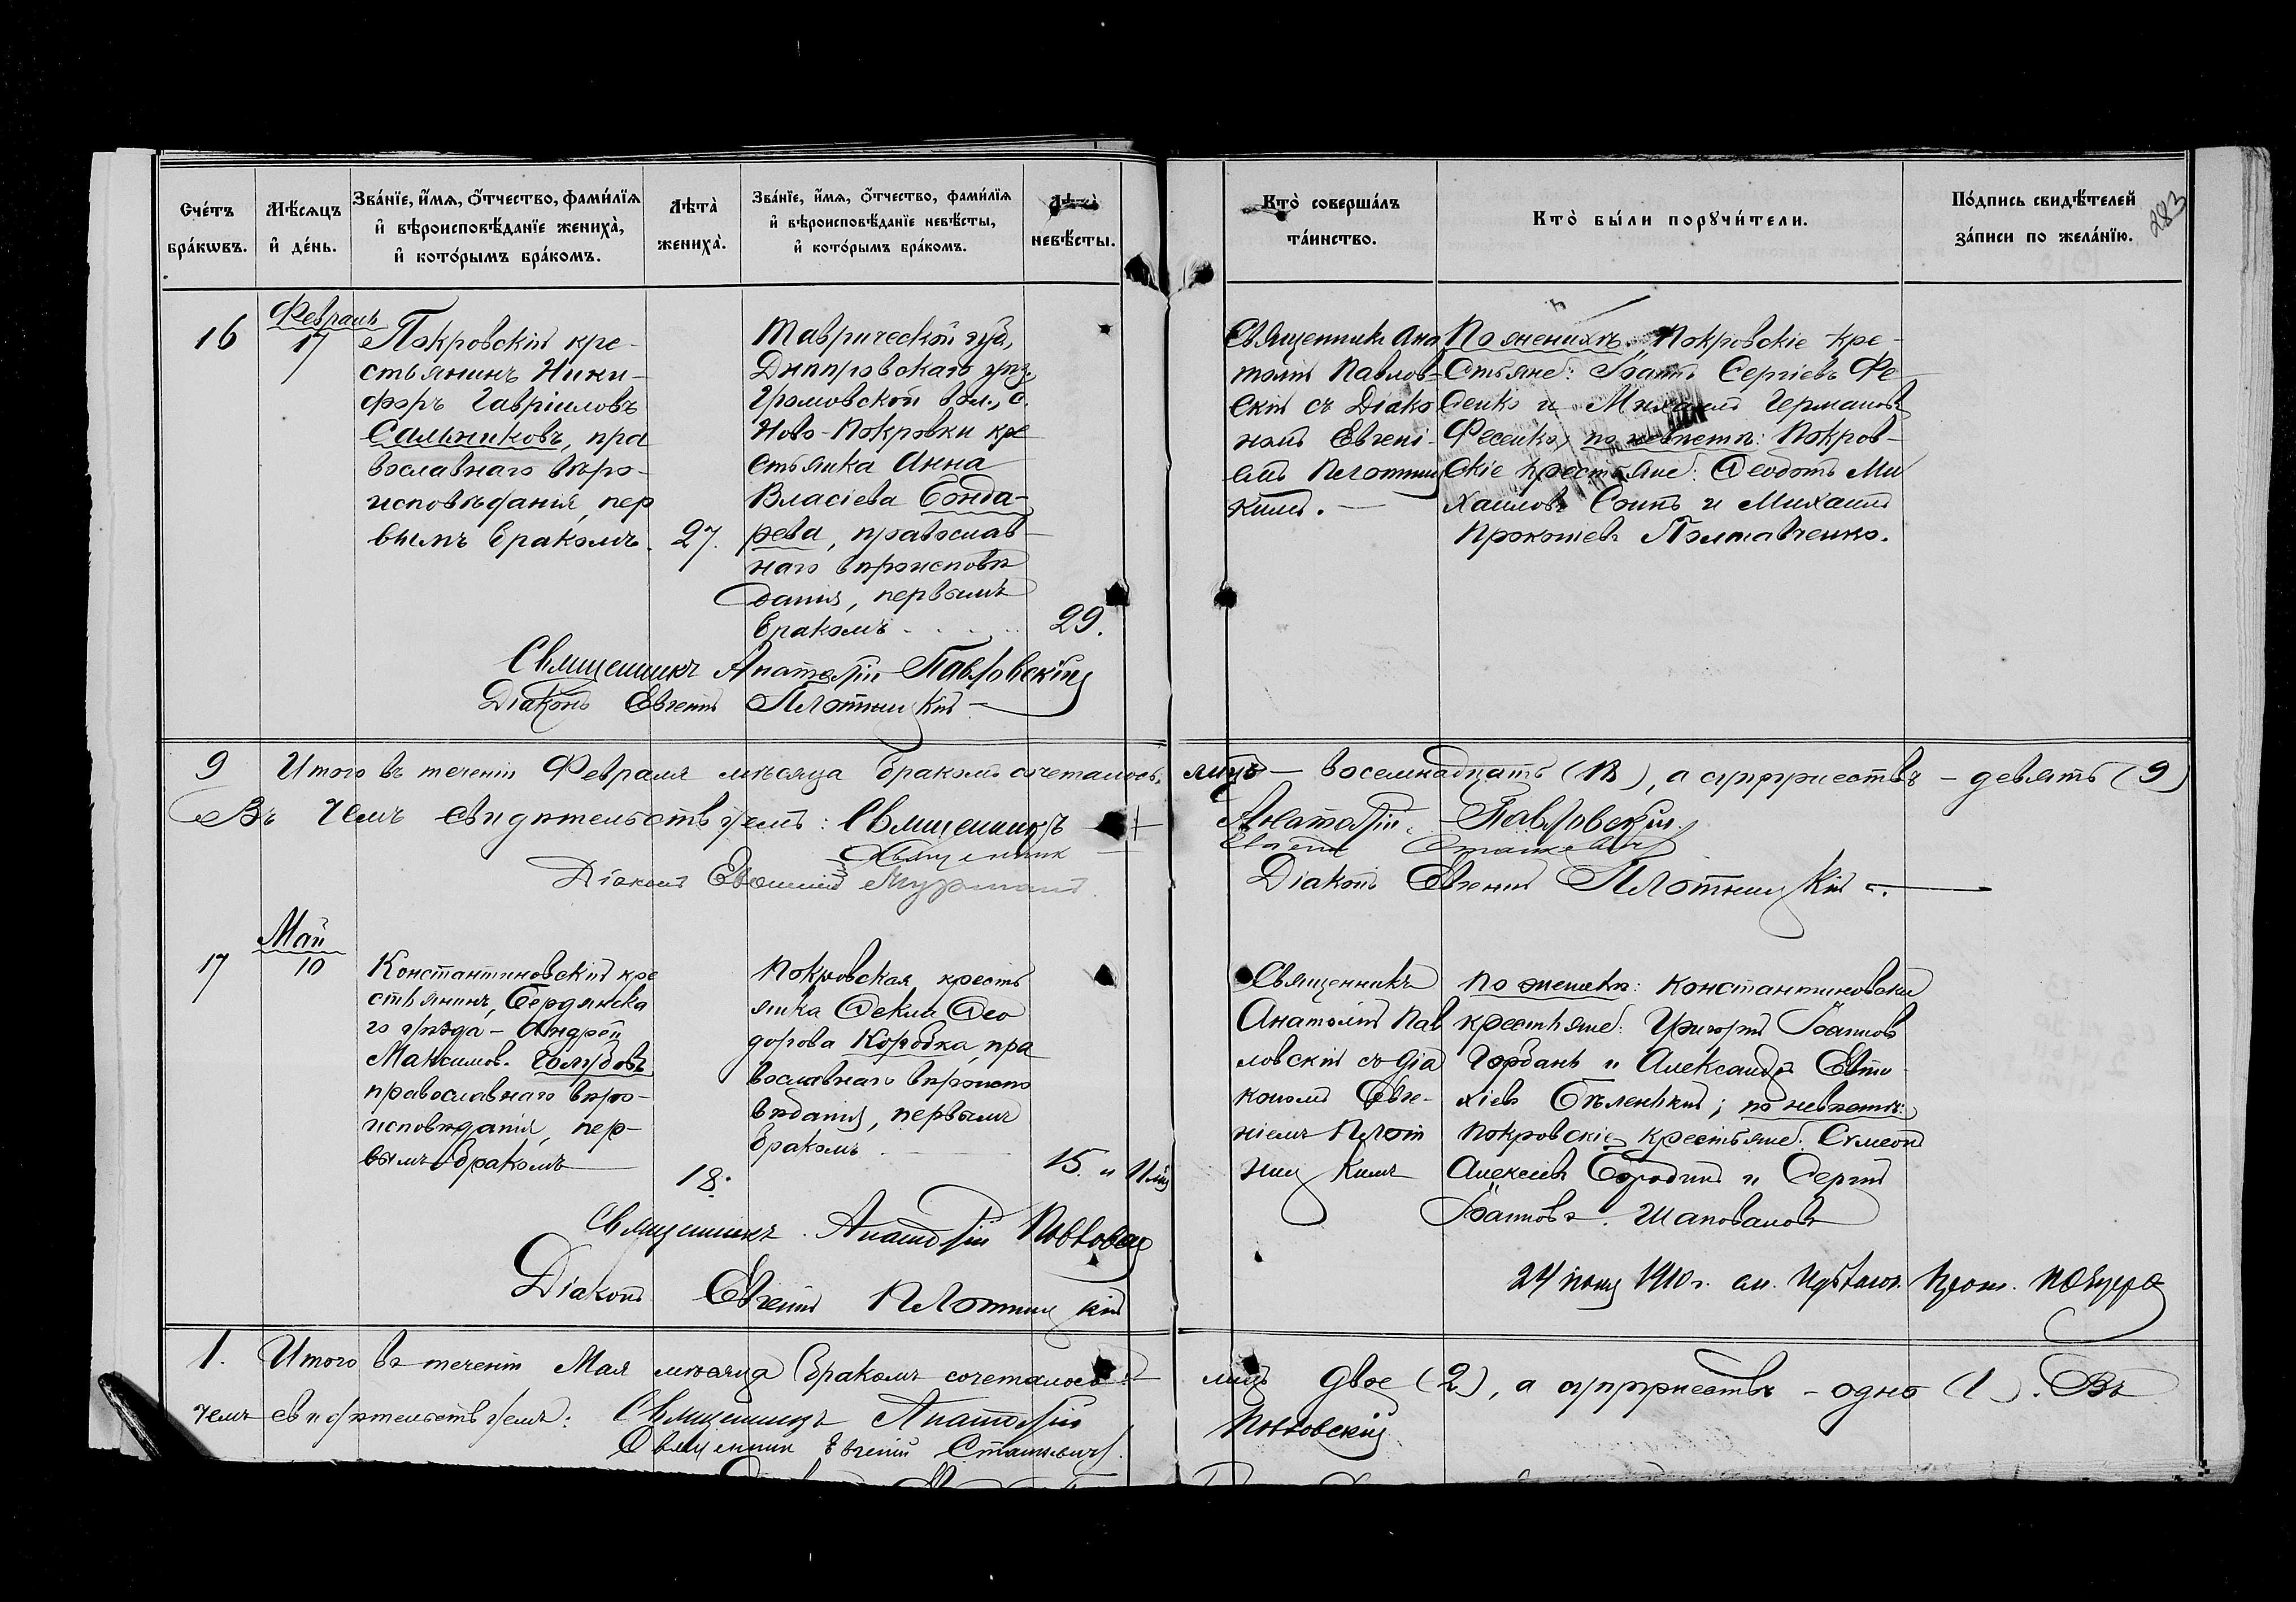 Счетъ браковъ.
Мѣсяцъ и день.
Званіе, имя, отчество, фамилія
и вѣроисповѣданіе жениха,
и которымъ бракомъ.
Лѣта жениха.
Званіе, имя, отчество, фамилія
и вѣроисповѣданіе невѣсты,
и которымъ бракомъ.
Лѣта невѣсты.
Кто совершалъ
таинство.
Кто были поручители.
Подпись свидѣтелей
записи по желанію.
283
16
Февраль
17
Покровскій кре-
стьянинъ Ники-
форъ Гавріиловъ
Сальниковъ, пра
вославнаго вѣро-
исповѣданія, пер
вымъ бракомъ.
27.
Таврической губ.,
Днѣпровскаго уѣз.
Громовской вол., с.
Ново-Покровки кре
стьянка Анна
Власіева Бонда-
рева, православ-
наго вѣроисповѣ
данія, первымъ
бракомъ
29.
Священникъ Ана
толій Павлов-
скій съ Діако
номъ Евгені-
емъ Плотниц
кимъ.
По женихѣ: Покровскіе кре-
стьяне: Іоаннъ Сергіевъ Фе-
сенко и Михаилъ Германовъ
Фесенко; по невѣстѣ: Покров-
скіе крестьяне: Ѳеодотъ Ми
хаиловъ и Михаилъ
Прокопіевъ Полтавченко.
Священникъ Анатолій Павловскій
Діаконъ Евгеній Плотницкій
9 Итого въ теченіи Февраля мѣсяца бракомъ сочеталось: лицъ – восемнадцать (18), а супружествъ – девять (9)
Въ чемъ свидѣтельствуемъ: Священникъ Анатолій Павловскій.
Священник Евгеній Станкевичъ
Діаконъ Діаконъ Евгеній Плотницкій
17
Май
10
Константиновскій кре
стьянинъ, Бердянска
го уѣзда – Андрей
Максимов. Голубовъ
православнаго вѣро-
исповѣданія, пер-
вымъ бракомъ
18.
Покровская кресть
янка Ѳекла Ѳео
дорова Коробка, пра
вославнаго вѣроиспо
вѣданія, первымъ
бракомъ
15.
Священникъ
Анатолій Пав
ловскій съ діа
кономъ Евге-
ніемъ Плот
ницкимъ
По женихѣ: Константиновскіе
крестьяне: Григорій Іоаннов
Горбань и Александръ Евти
хіевъ Бѣленькій; по невѣстѣ:
Покровскіе крестьяне: Сѵмеонъ
Алексіевъ Бородинъ и Сергій
Іоанновъ Шаповаловъ
Священникъ Анатолій Павловскій
Діаконъ Евгеній Плотницкій
24 1910 г.
1. Итого въ теченіи Мая мѣсяца бракомъ сочеталось: лицъ двое (2), а супружествъ – одно (1). Въ
чемъ свидѣтельствуемъ: Священникъ Анатолій Павловскій
Священник Евгеній Станкевичъ.